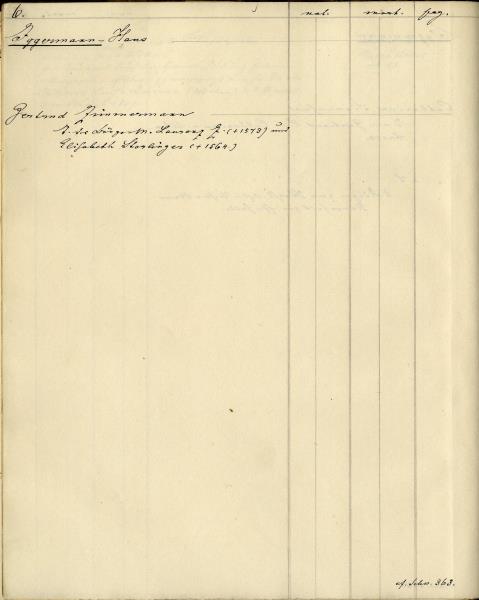 6. nat. mort. pag.
Iggermann - Hans
Gertrud Zimmermann
T. des Bürger M. Laurenz Z. (+1573) und
Elisabeth (+1564.)
cf. Schn. 363.